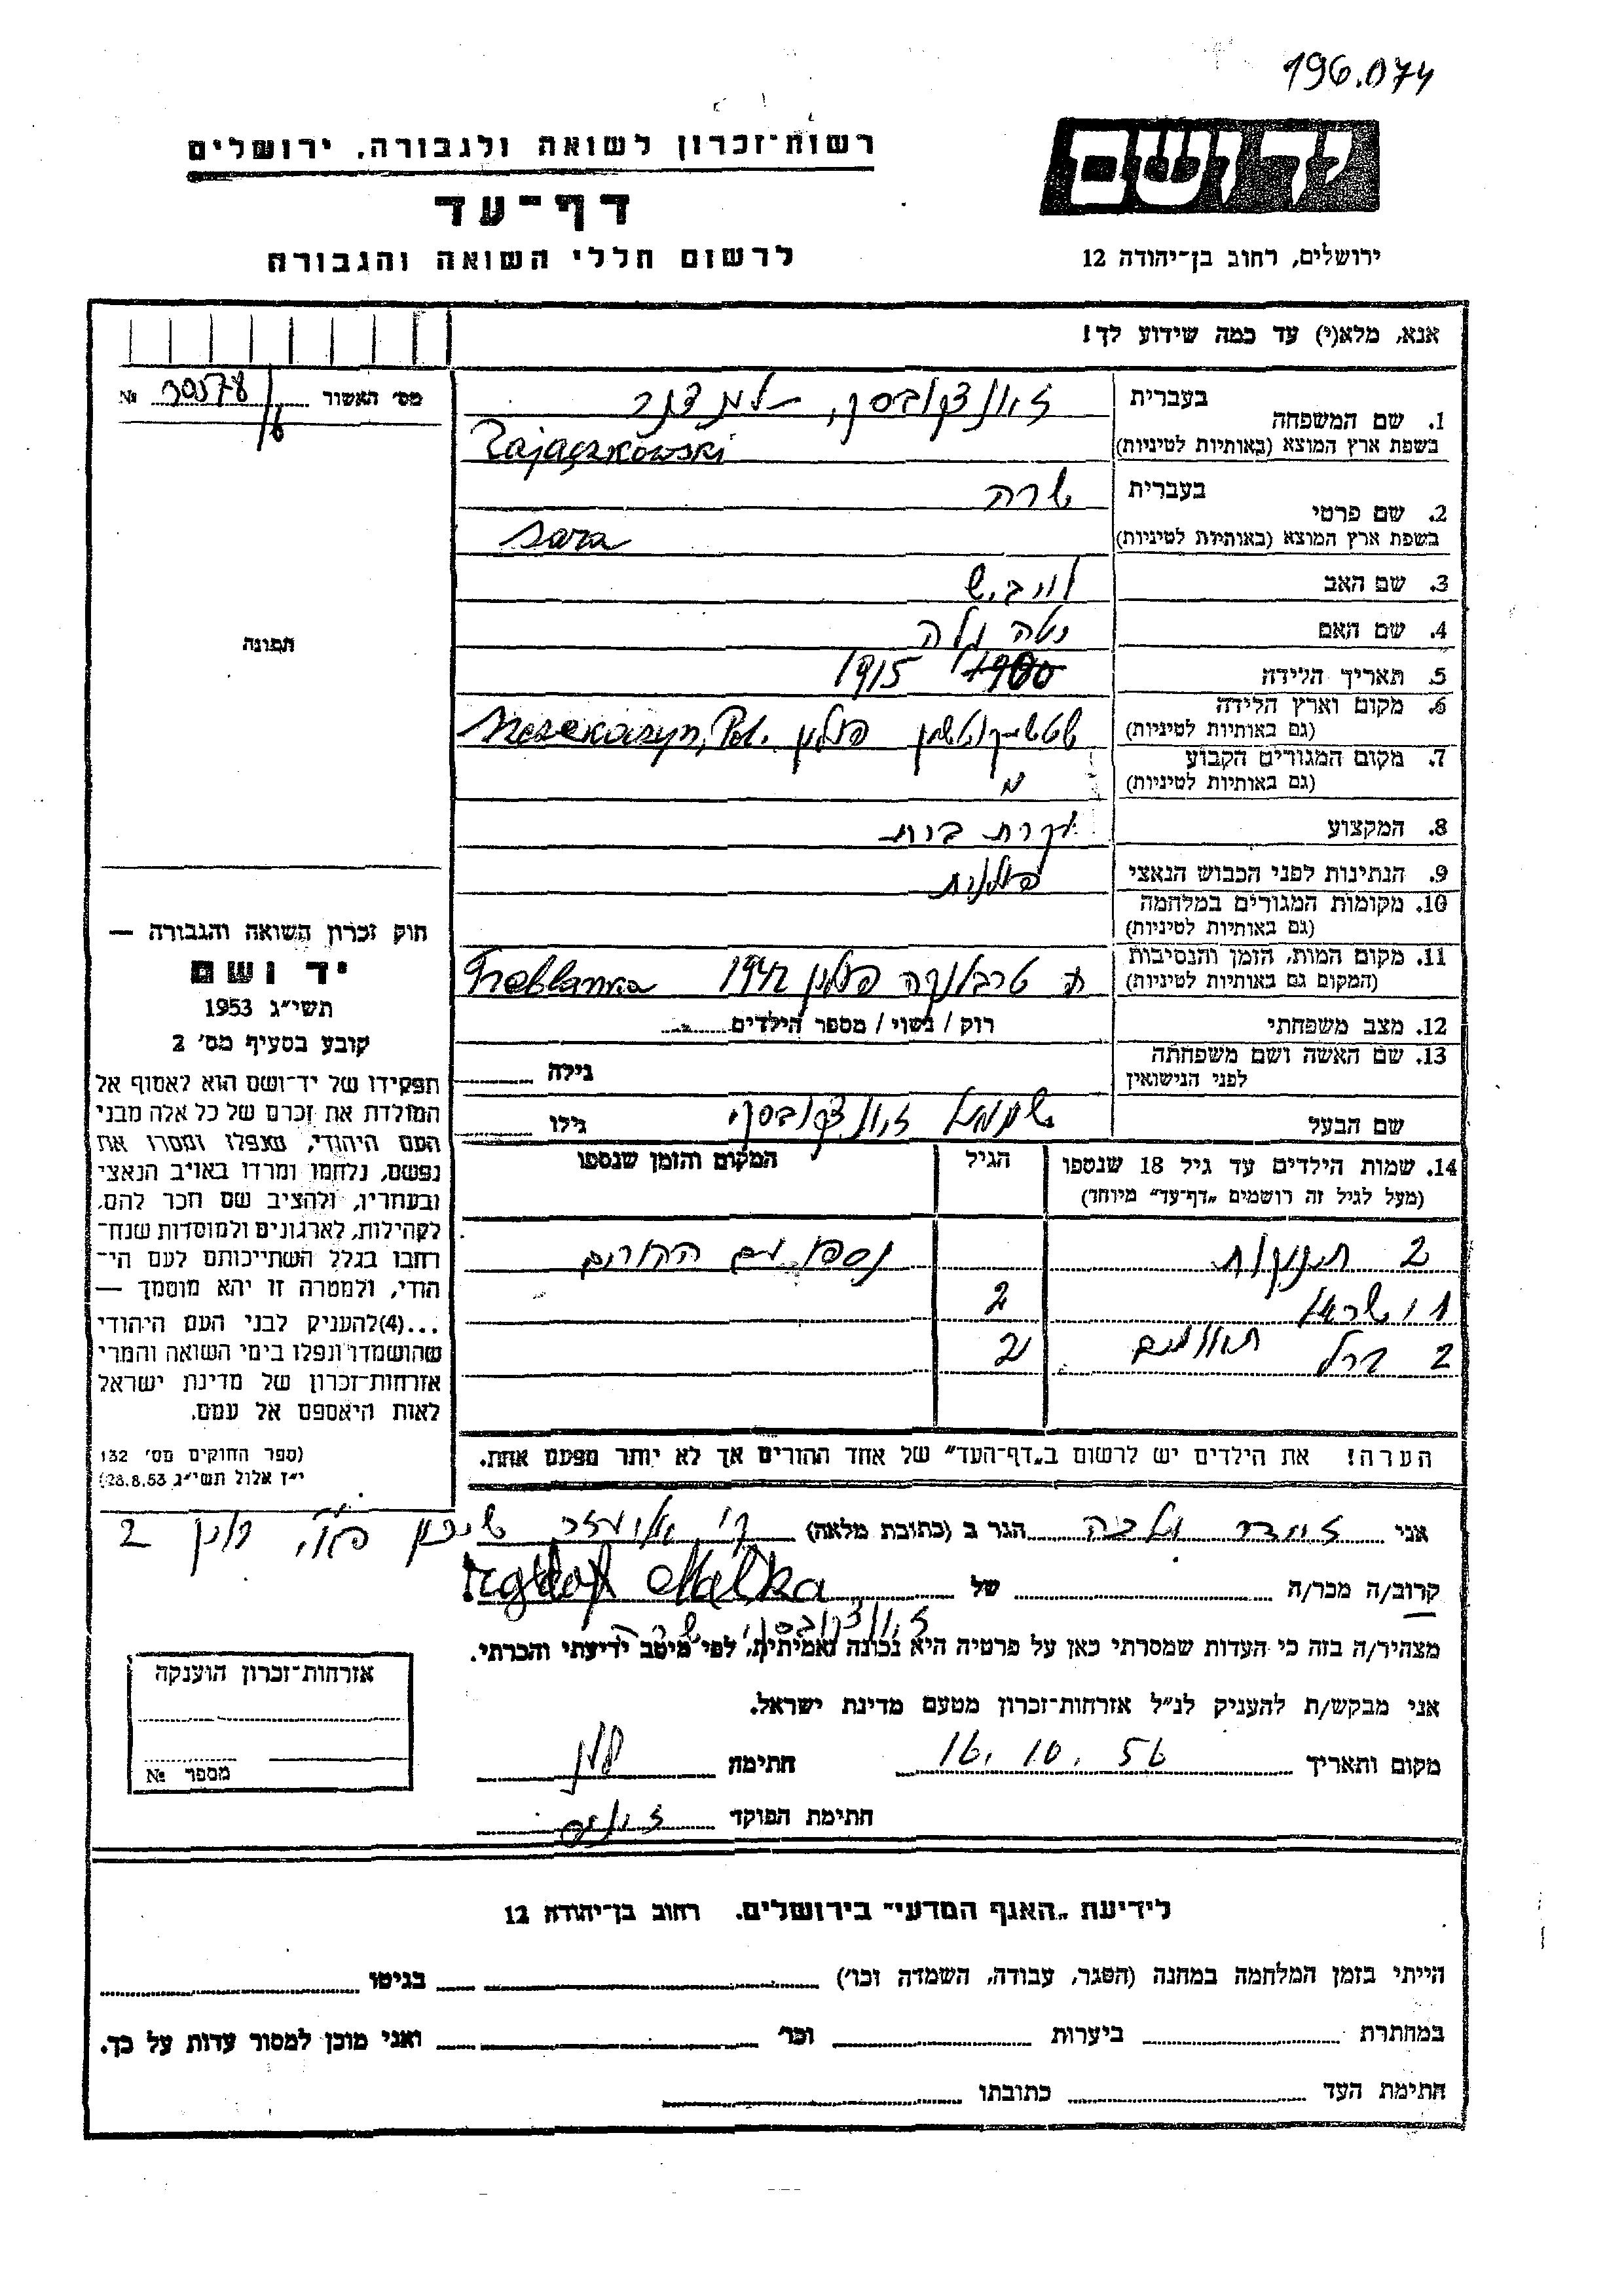 196.074
ידושם
רשות־זכרון לשואה ולגבורה, ירושלים
דף־עד
לרשום חללי השואה והגבורה
ירושלים, רחוב בן־יהודה 12
אנא, מלא(י) עד כמה שידוע לך!
מס׳ האשור № 30578/6
1. שם המשפחה
בעברית
בשפת ארץ המוצא (באותיות לטיניות)
Zajączkowski
2. שם פרטי
בעברית שרה
בשפת ארץ המוצא (באותיות לטיניות) Sara
3. שם האב לויב.ש
4. שם האם
5. תאריך הלידה 1900 1915
6. מקום וארץ הלידה פולין Pol.
(גם באותיות לטיניות)
7. מקום המגורים הקבוע
(גם באותיות לטיניות)
8. המקצוע עקרת בית
9. הנתינות לפני הכבוש הנאצי פולנית
10. מקומות המגורים במלחמה
(גם באותיות לטיניות)
11. מקום המות, הזמן והנסיבות טרבלינקה פולין 1942 Treblanka
(המקום גם באותיות לטיניות)
12. מצב משפחתי רוק / נשוי / מספר הילדים
13. שם האשה ושם משפחתה
לפני הנישואין
גילה
שם הבעל
גילו
14. שמות הילדים עד גיל 18 שנספו
(מעל לגיל זה רושמים „דף־עד״ מיוחד)
הגיל
המקום והזמן שנספו
2 תינוקות נספו עם ההורים
1 ישראל 2
2 ברל תאומים 2
הערה! את הילדים יש לרשום ב„דף־העד״ של אחד ההורים אך לא יותר מפעם אחת.
תמונה
חוק זכרון השואה והגבורה —
יד ושם
תשי״ג 1953
קובע בסעיף מס׳ 2
תפקידו של יד־ושם הוא לאסוף אל
המולדת את זכרם של כל אלה מבני
העם היהודי, שנפלו ומסרו את
נפשם, נלחמו ומרדו באויב הנאצי
ובעוזריו, ולהציב שם וזכר להם,
לקהילות, לארגונים ולמוסדות שנח־
רבו בגלל השתייכותם לעם הי־
הודי, ולמטרה זו יהא מוסמך —
...(4)להעניק לבני העם היהודי
שהושמדו ונפלו בימי השואה והמרי
אזרחות־זכרון של מדינת ישראל
לאות היאספם אל עמם.
(ספר החוקים מס׳ 132
י״ז אלול תשי״ג 28.8.53)
אני מלכה הגר ב (כתובת מלאה) שיכון 2
קרוב/ה מכר/ה של Malka
מצהיר/ה בזה כי העדות שמסרתי כאן על פרטיה היא נכונה ואמיתית, לפי מיטב ידיעתי והכרתי.
אני מבקש/ת להעניק לנ״ל אזרחות־זכרון מטעם מדינת ישראל.
מקום ותאריך 16. 10. 56 חתימה
חתימת הפוקד
אזרחות־זכרון הוענקה
מספר №
לידיעת „האגף המדעי״ בירושלים. רחוב בן־יהודה 12
הייתי בזמן המלחמה במחנה (הסגר, עבודה, השמדה וכו׳) בגיטו
במחתרת ביערות וכו׳ ואני מוכן למסור עדות על כך.
חתימת העד כתובתו